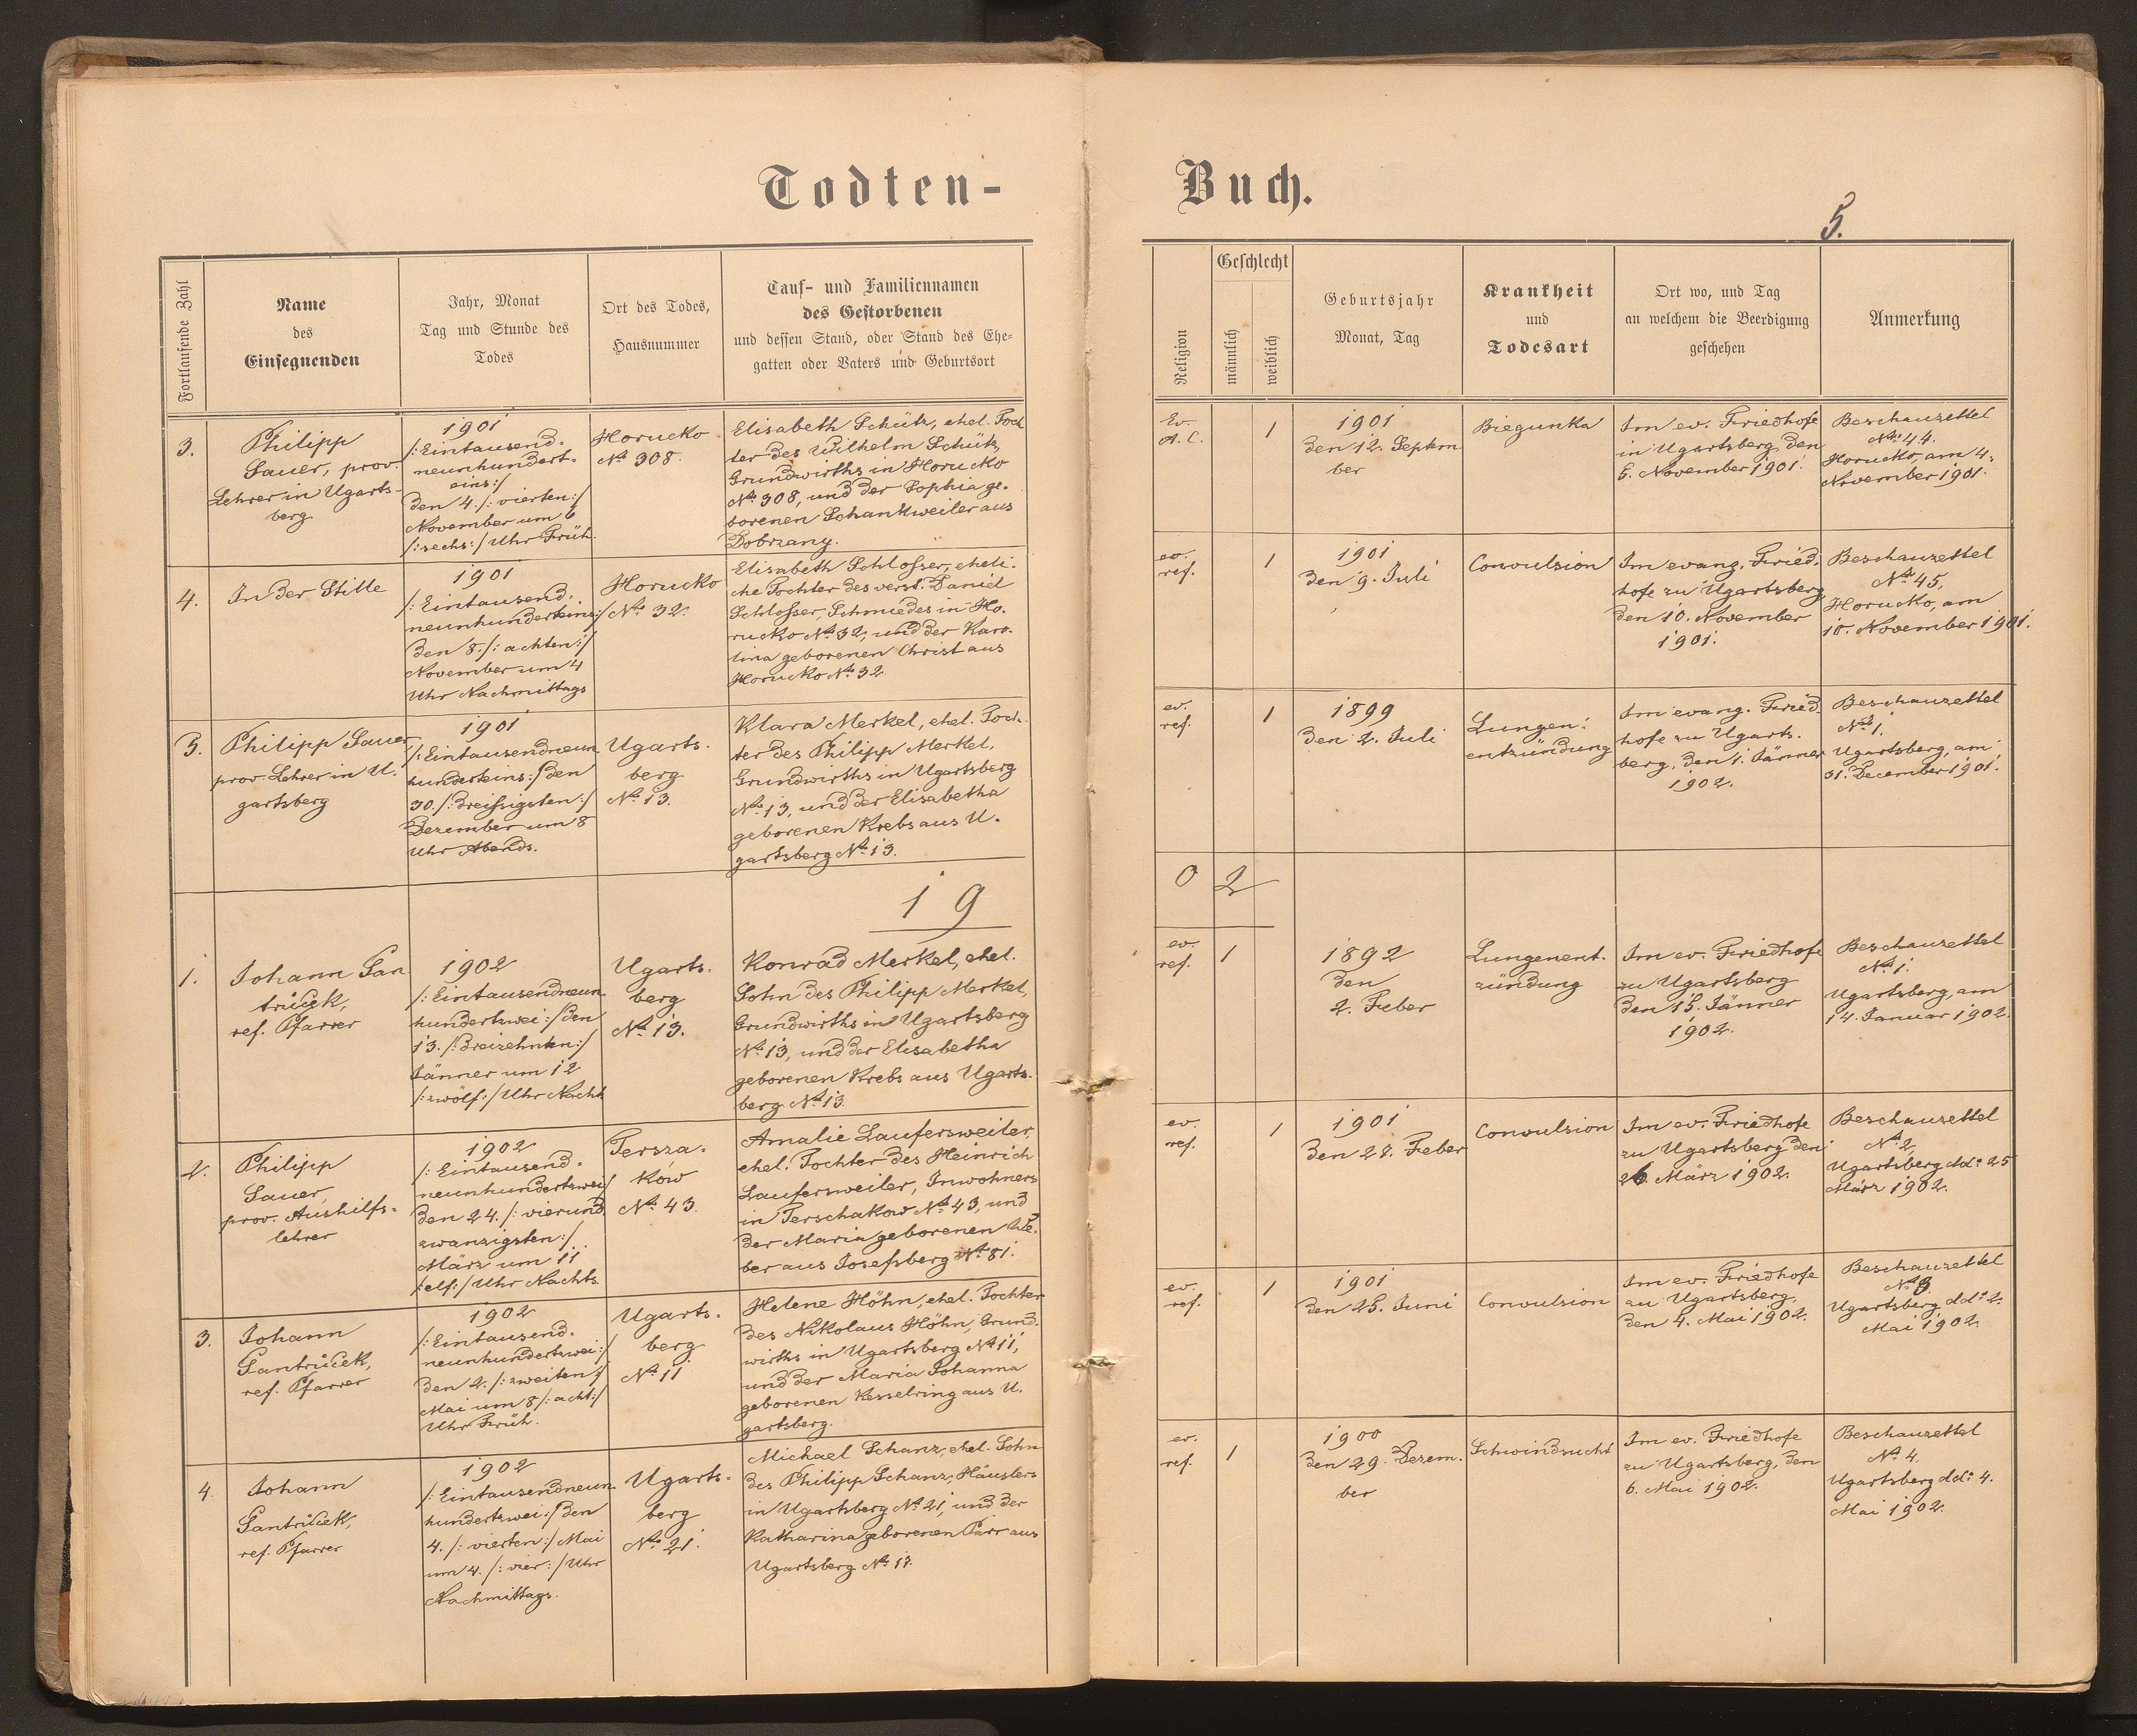 Todten-
Buch.
5.
Fortlaufende Zahl
Name
des
Einsegnenden
Jahr, Monat
Tag und Stunde des
Todes
Ort des Todes,
Hausnummer
Tauf- und Familiennamen
des Gestorbenen
und dessen Stand, oder Stand des Ehe=
gatten oder Vaters und Geburtsort
Religion
Geschlecht
männlich
weiblich
Geburtsjahr
Monat, Tag
Krankheit
und
Todesart
Ort wo, und Tag
an welchem die Beerdigung
geschehen
Anmerkung
3.
Philipp
Sauer, prov.
Lehrer in Ugarts-
berg
1901
/: Eintausend-
neunhundert-
eins :/
den 4. /: vierten :/
November um 6
/: sechs :/ Uhr Früh.
Horucko
No 308.
Elisabeth Schütz, ehel. Toch
ter des Wilhelm Schütz,
Grundwirths in Horucko
No 308, und der Sophia ge-
borenen Schankweiler aus
Dobrzany.
Ev.
A. C.
1
1901
den 12. Septem
ber
Biegunka
Im ev. Friedhofe
in Ugartsberg, den
5. November 1901.
Beschauzettel
No 44.
Horucko, am 4.
November 1901.
4.
In der Stille
1901
/: Eintausend-
neunhunderteins :/
den 8. /: achten :/
November um 4
Uhr Nachmittags
Horucko
No 32.
Elisabeth Schlosser, eheli-
che Tochter des verst. Daniel
Schlosser, Schmiedes in Ho-
rucko No 32, und der Karo-
lina geborenen Christ aus
Horucko No 32
ev.
ref.
1
1901
den 9. Juli
Convulsion
Im evang. Fried-
hofe zu Ugartsberg
den 10. November
1901.
Beschauzettel
No 45,
Horucko, am
10. November 1901.
5.
Philipp Sauer
prov. Lehrer in U-
gartsberg
1901
/: Eintausendneun
hunderteins :/ den
30. /: dreissigsten :/
Dezember um 8
Uhr Abends.
Ugarts-
berg
No 13.
Klara Merkel, ehel. Toch-
ter des Philipp Merkel,
Grundwirths in Ugartsberg
No 13, und der Elisabetha
geborenen Krebs aus U-
gartsberg No 13.
ev.
ref.
1
1899
den 2. Juli
Lungen-
entzündung
Im evang. Fried-
hofe zu Ugarts-
berg, den 1. Jänner
1902.
Beschauzettel
No 1,
Ugartsberg, am
31. December 1901.
1 9
0 2
1.
Johann San
trůček,
ref. Pfarrer
1902
/: Eintausendneun
hundertzwei :/ den
13. /: dreizehnten :/
Jänner um 12
/: zwölf :/ Uhr Nachts
Ugarts-
berg
No 13.
Konrad Merkel, ehel.
Sohn des Philipp Merkel,
Grundwirths in Ugartsberg
No 13, und der Elisabetha
geborenen Krebs aus Ugarts-
berg No 13.
ev.
ref.
1
1892
den
2. Feber
Lungenent-
zündung
Im ev. Friedhofe
zu Ugartsberg
den 15. Jänner
1902.
Beschauzettel
No 1.
Ugartsberg, am
14. Januar 1902.
2.
Philipp
Sauer,
prov. Aushilfs-
lehrer
1902
/: Eintausend-
neunhundertzwei :/
den 24. /: vierund
zwanzigsten :/
März um 11
/: elf :/ Uhr Nachts.
Tersza-
ków
No 43
Amalie Laufersweiler,
ehel. Tochter des Heinrich
Laufersweiler, Inwohners
in Terschakow No 43, und
der Maria geborenen We-
ber aus Josefsberg No 81.
ev.
ref.
1
1901
Feber
Convulsion
Im ev. Friedhofe
zu Ugartsberg den
26. März 1902.
Beschauzettel
No 2,
Ugartsberg ddo 25
März 1902.
3.
Johann
Santrůček,
ref. Pfarrer
1902
/: Eintausend-
neunhundertzwei :/
den 2. /: zweiten :/
Mai um 8 /: acht :/
Uhr Früh.
Ugarts-
berg
No 11
Helene Höhn, ehel. Tochter
des Nikolaus Höhn, Grund-
wirths in Ugartsberg No 11,
und der Maria Johanna
geborenen Kesselring aus U-
gartsberg.
ev.
ref.
1
1901
den 25. Juni
Convulsion
Im ev. Friedhofe
zu Ugartsberg,
den 4. Mai 1902.
Beschauzettel
No 3
Ugartsberg ddo 2.
Mai 1902.
4.
Johann
Santrůček,
ref. Pfarrer
1902
/: Eintausendneun
hundertzwei :/ den
4. /: vierten :/ Mai
um 4. /: vier :/ Uhr
Nachmittags.
Ugarts-
berg
No 21.
Michael Schanz, ehel. Sohn
des Philipp Schanz, Häuslers
in Ugartsberg No 21, und der
Katharina geborenen Parr aus
Ugartsberg No
ev.
ref.
1
1900
den 29. Dezem-
ber
Schwindsucht
Im ev. Friedhofe
zu Ugartsberg, den
6. Mai 1902.
Beschauzettel
No 4.
Ugartsberg ddo 4.
Mai 1902.